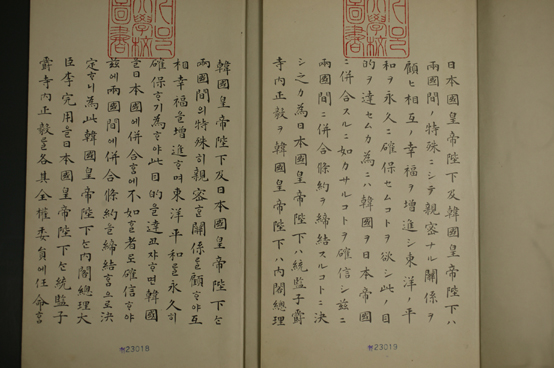 日本國皇帝陛下及韓國皇帝陛下ハ
兩國間ノ特殊ニシテ親密ナル關係ヲ
顧ヒ相互ノ幸福ヲ增進シ東洋ノ平
和ヲ永久ニ確保セムコトヲ欲シ此ノ目
的ヲ達セムカ爲ニハ韓國ヲ日本帝國
ニ併合スルニ如カサルコトヲ確信シ茲ニ
兩國間ニ併合條約ヲ締結スルコトニ決
シ之カ爲日本國皇帝陛下ハ統監子爵
寺內正毅ヲ韓國皇帝陛下ハ內閣總理
23019
韓國皇帝陛下及日本國皇帝陛下는
兩國間의特殊히親密ᄒᆞᆫ關係를顧ᄒᆞ야互
相幸福을增進ᄒᆞ며東洋平和를永久히
確保ᄒᆞ기爲ᄒᆞ야此目的을達코ᄌᆞᄒᆞ면韓國
을日本國에併合ᄒᆞᆷ에不如ᄒᆞᆫ者로確信ᄒᆞ야
茲에兩國間에併合條約을締結ᄒᆞᆷ으로決
定ᄒᆞ니爲此韓國皇帝陛下는內閣總理大
臣李完用을日本國皇帝陛下는統監子
爵寺內正毅를各其全權委員에任命ᄒᆞᆷ
23018